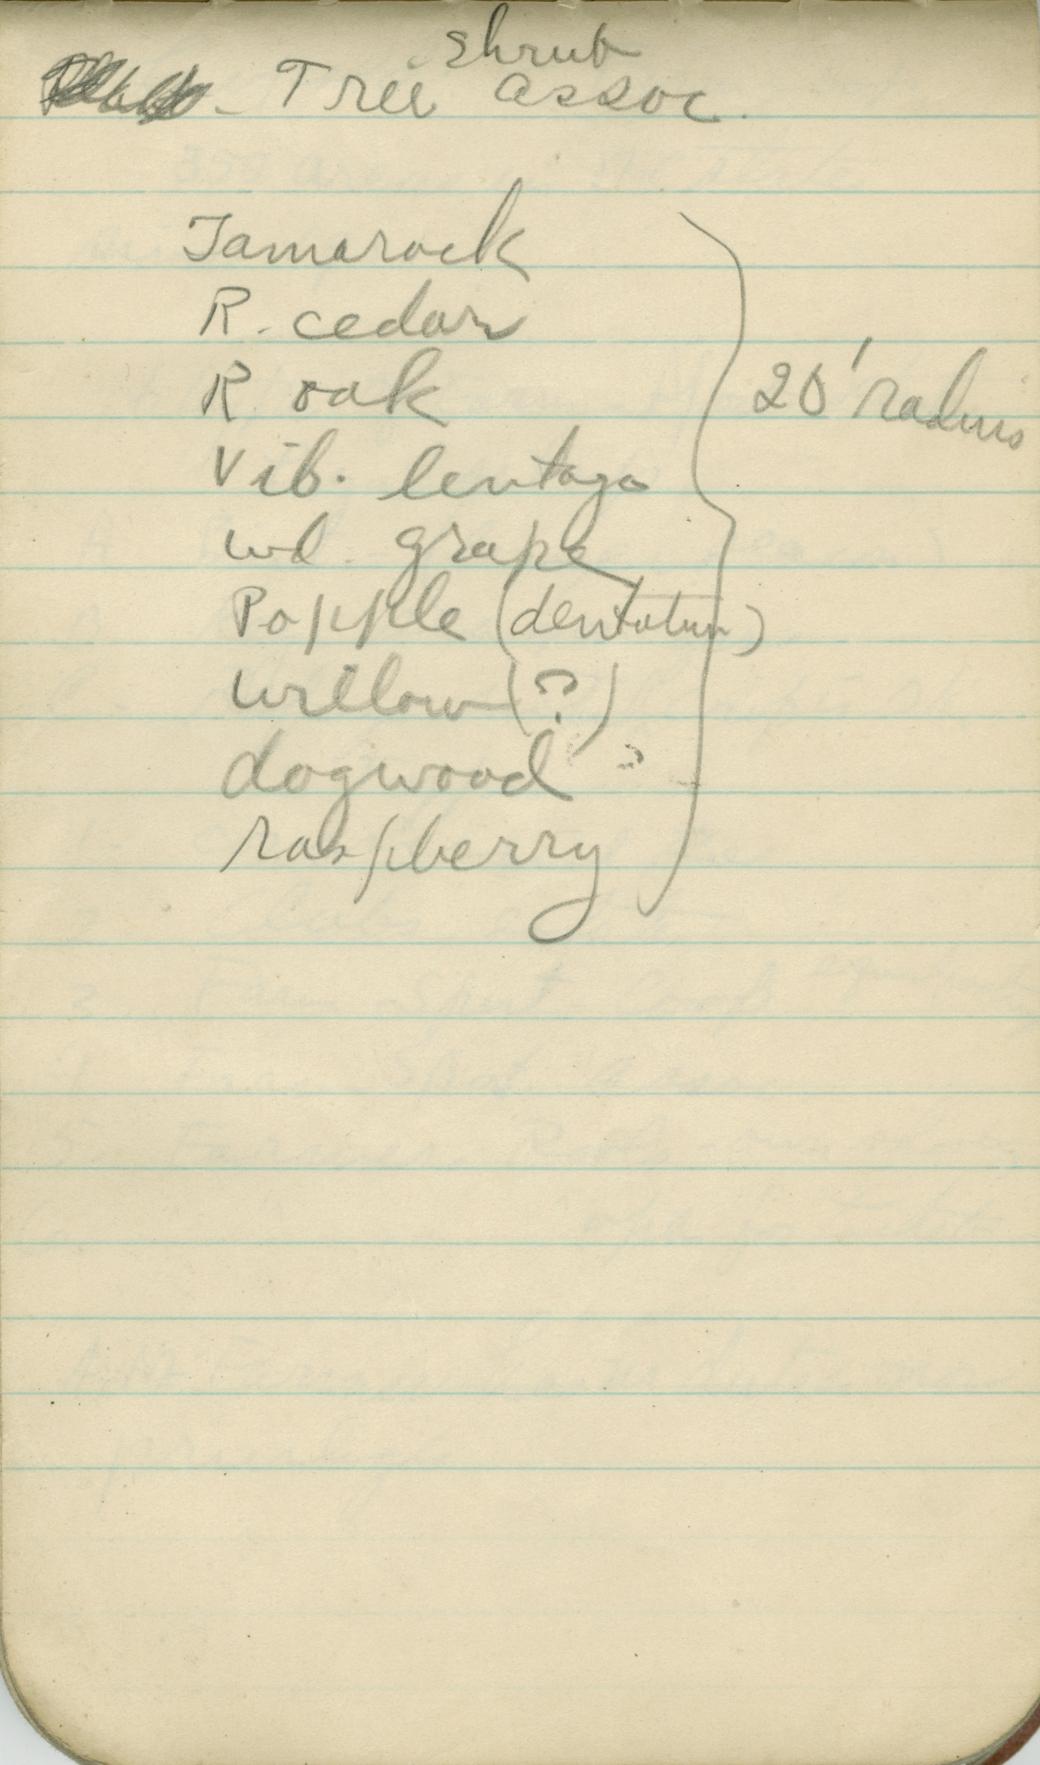 shrub
Tree assoc.
Tamarack
R. cedar
R. oak
20' radius
Vib. lentago
wd. grape
Popple (dentatum)
willow (?)
dogwood ?
raspberry